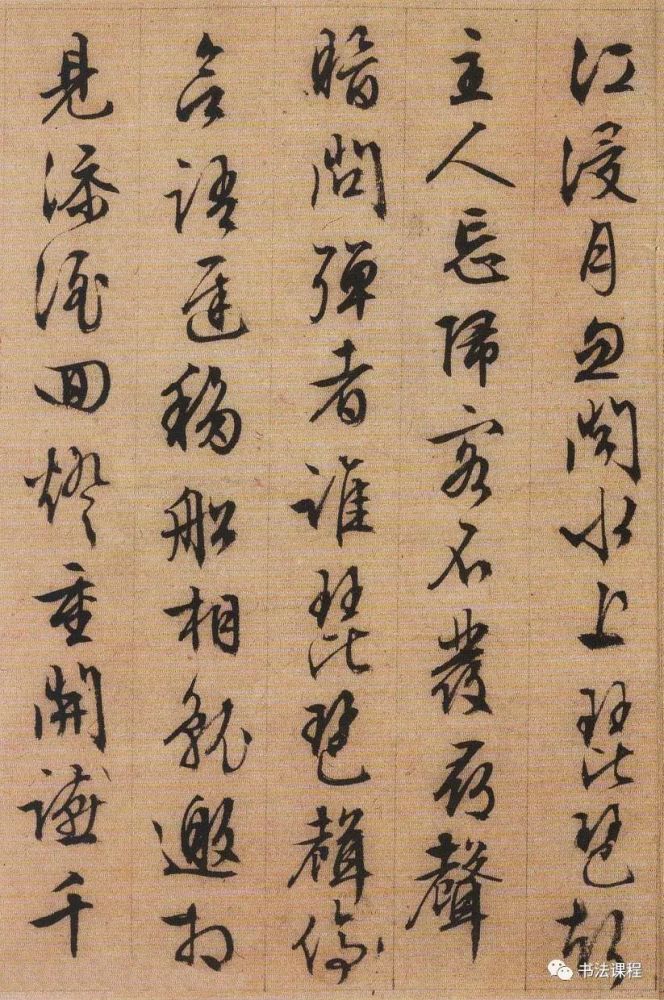 江浸月忽聞水上琵琶聲
主人忘歸客不發尋聲
暗問彈者誰琵琶聲停
欲語遲移船相就邀相
見添酒回燈重開讌千
书法课程